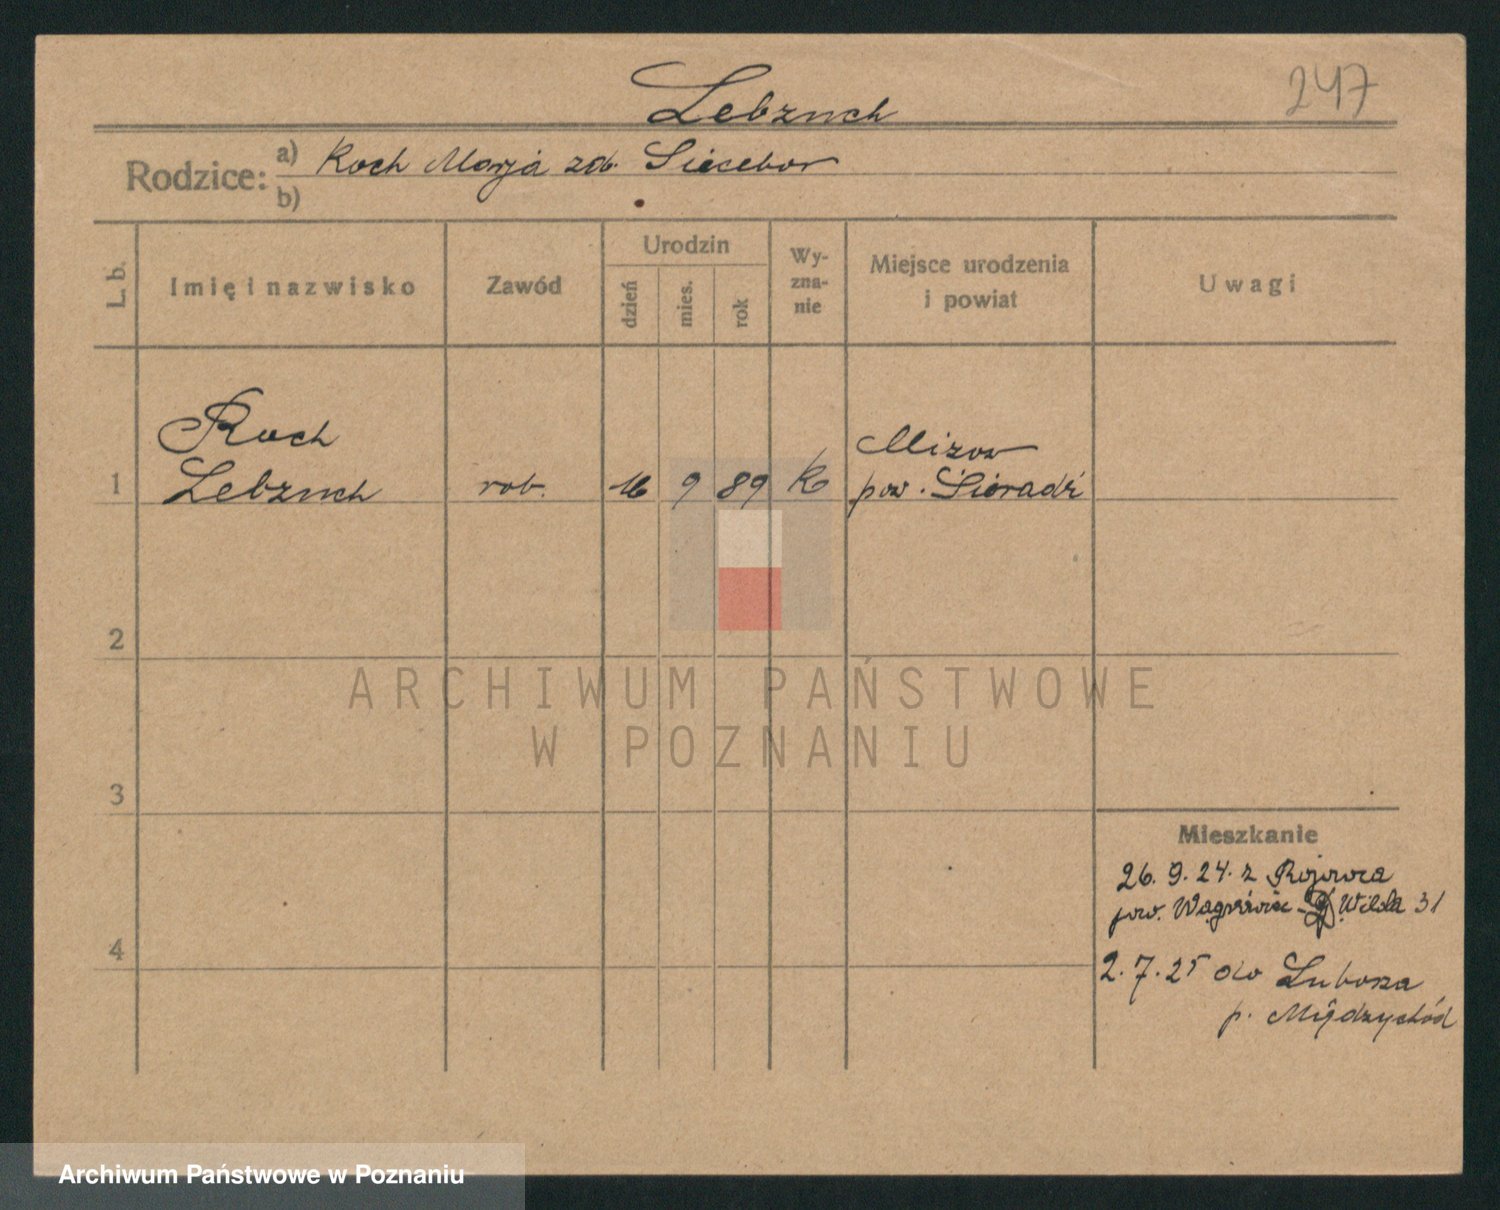 247
Lebzuch
Rodzice: a) Roch Marja zd. Siecebor
b)
L. b. Imię i nazwisko Zawód Urodzin dzień mies. rok Wy-zna-nie Miejsce urodzenia i powiat Uwagi
Roch Mizow
1 Lebzuch rob. 16 9 89 K pow. Sieradź
2
3
4
Mieszkanie
26. 9. 24. z
pow. Wilda 31
2. 7. 25 do Lubosza
p. Międzychód
ARCHIWUM PAŃSTWOWE
W POZNANIU
Archiwum Państwowe w Poznaniu